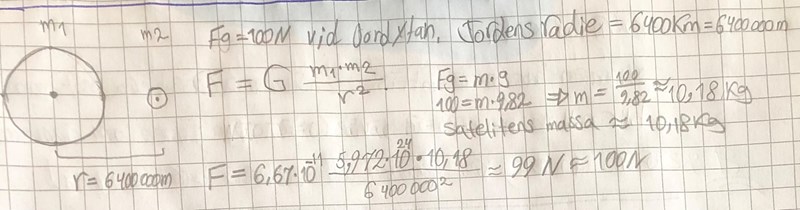 m1
m2
Fg=100N vid Jordytan. Jordens radie = 6400Km=6400000m
F = G m1·m2 / r²
Fg=m·g
100=m·9,82 ⇒ m = 100/9,82 ≈ 10,18 kg
Satelitens massa ≈ 10,18 kg
r= 6400000m
F = 6,67·10^-11 5,972·10^24·10,18 / 6400000² ≈ 99 N ≈ 100N